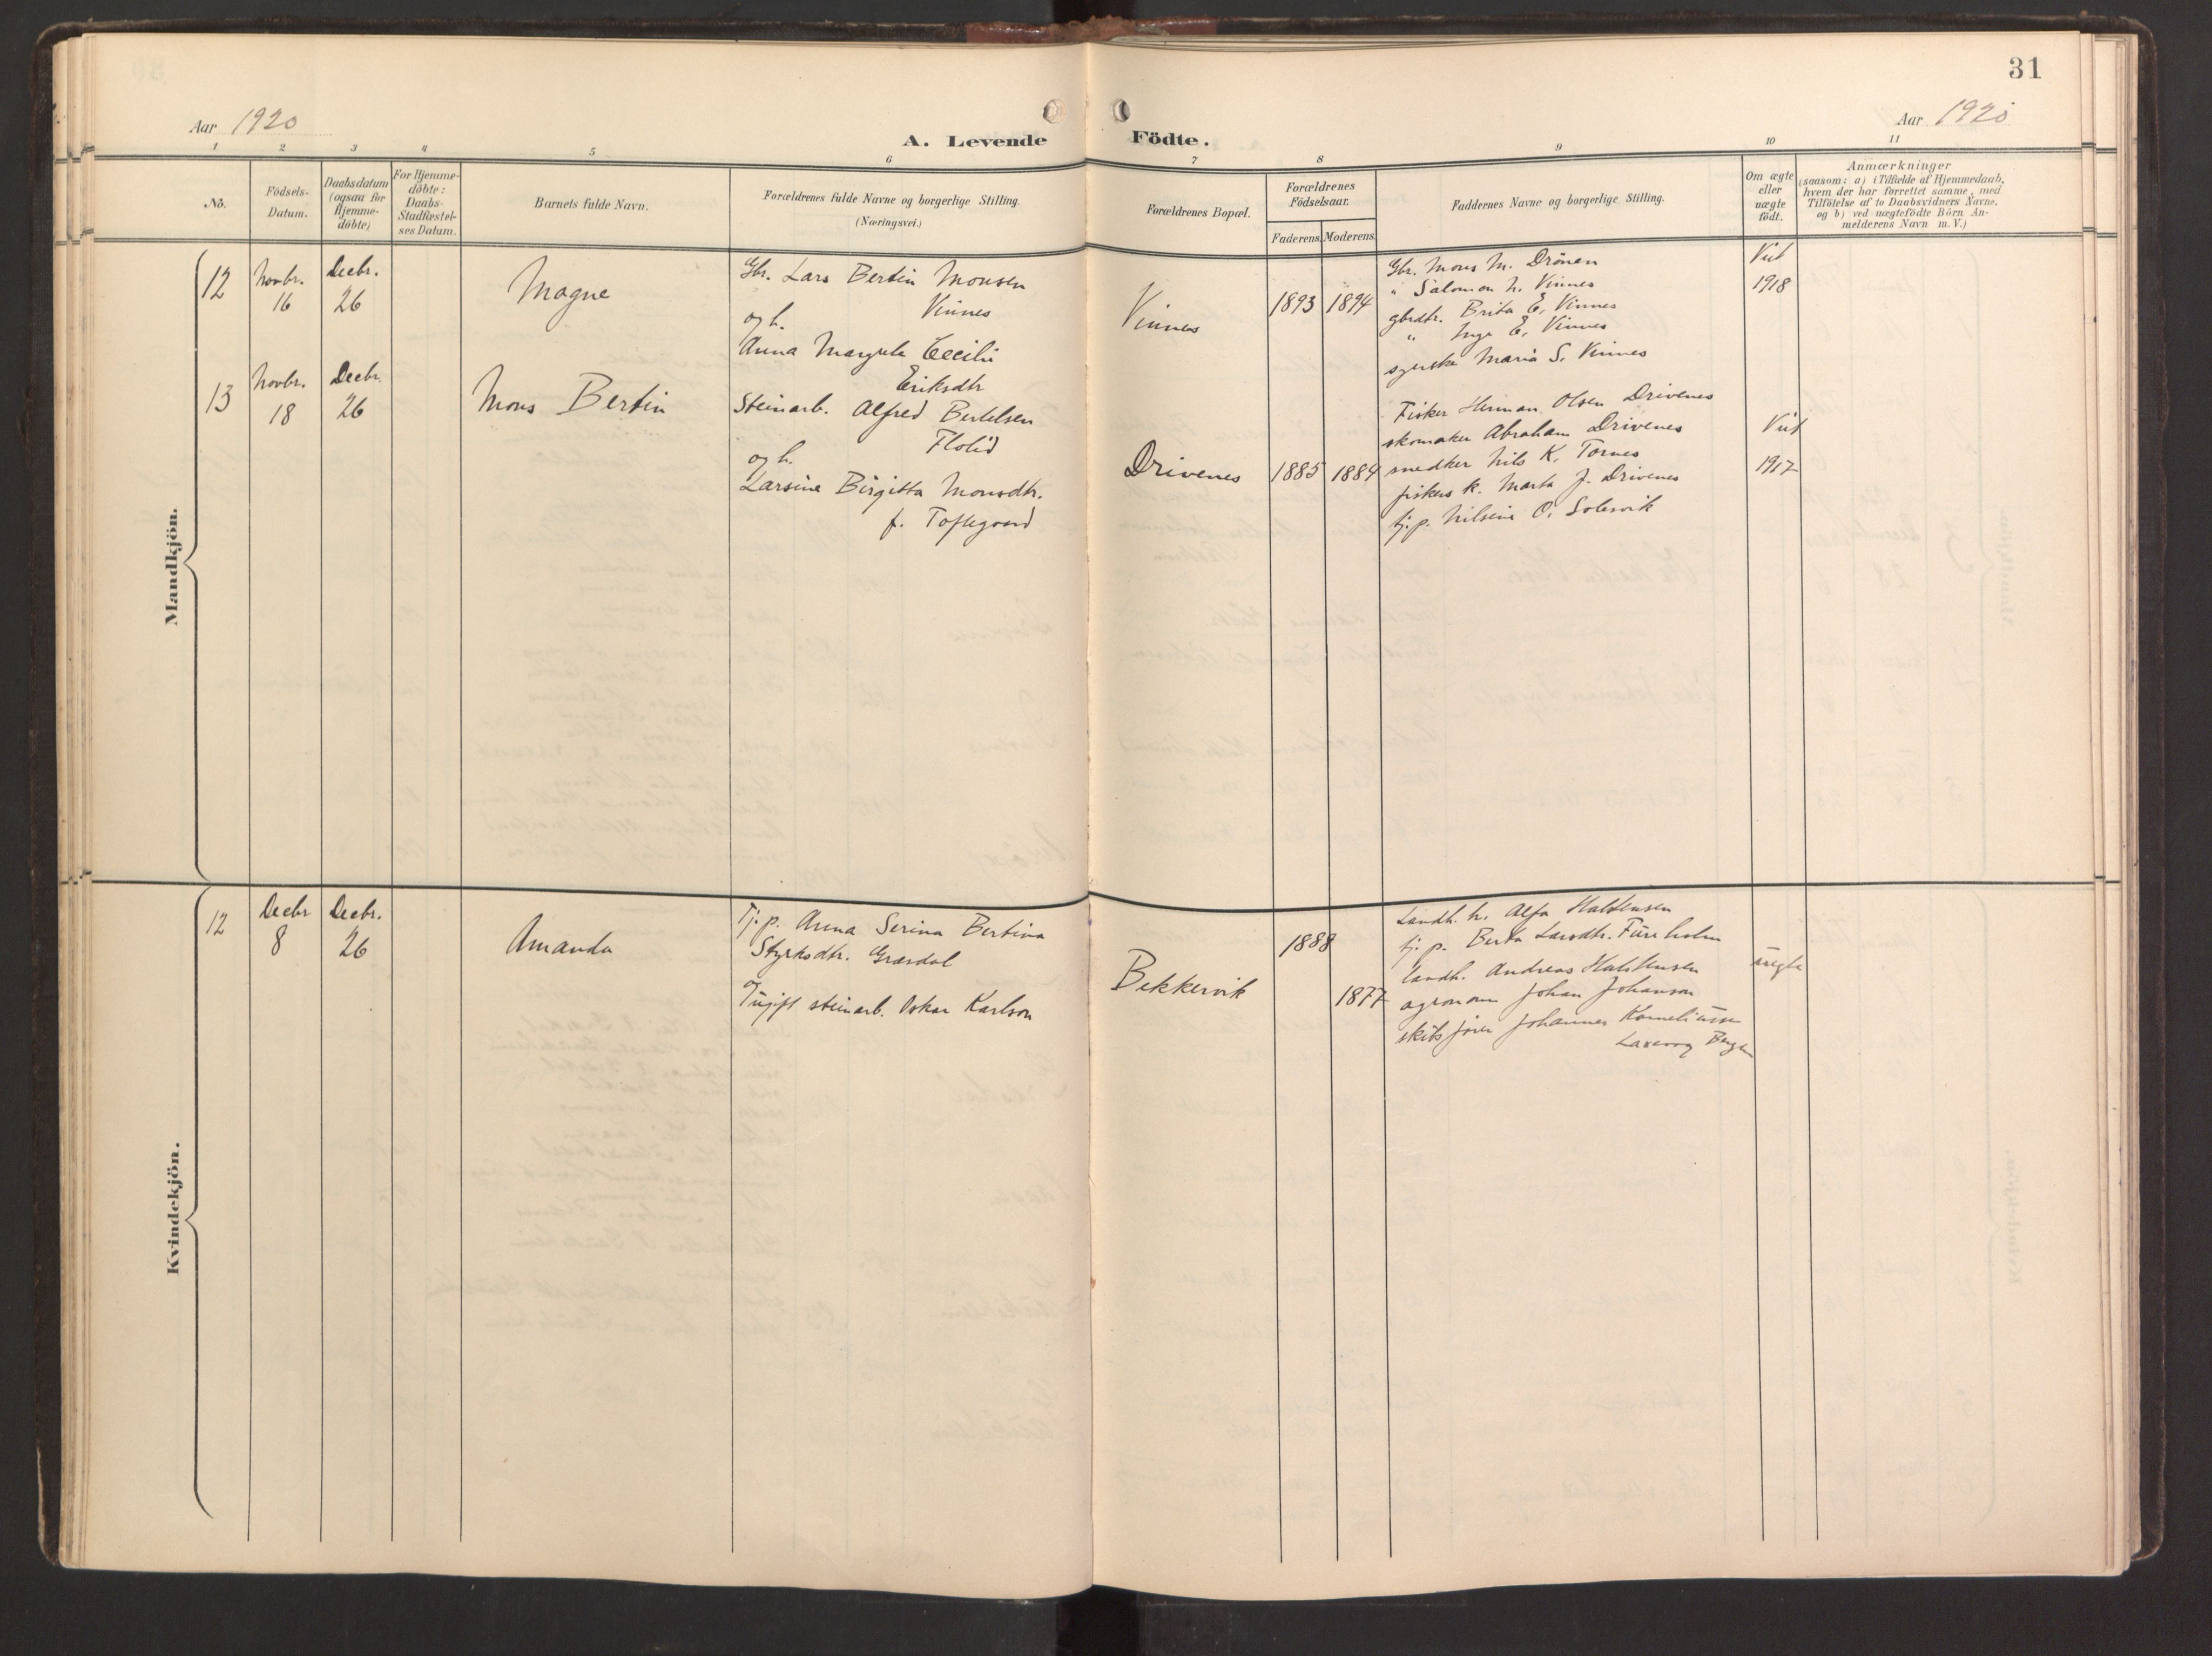 31
Aar 1920
Aar 1920
A. Levende Födte.
1 2 3 4 5 6 7 8 9 10 11
No.
Födsels-
Datum.
Daabsdatum
(ogsaa for
Hjemme-
döbte)
For Hjemme-
döbte:
Daabs-
Stadfæstel-
ses Datum.
Barnets fulde Navn.
Forældrenes fulde Navne og borgerlige Stilling.
(Næringsvei.)
Forældrenes Bopæl.
Forældrenes
Födselsaar.
Faderens. Moderens.
Faddernes Navne og borgerlige Stilling.
Om ægte
eller
uægte
födt.
Anmærkninger
(saasom: a) i Tilfælde af Hjemmedaab,
hvem der har forrettet samme, med
Tilföielse af to Daabsvidners Navne,
og b) ved uægtefödte Börn An-
melderens Navn m. V.)
Mandkjön.
12
Novbr.
16
Decbr.
26
Magne
Gbr. Lars Bertin Monsen
Vinnes
og h.
Anna Margrete Cecilie
Eriksdtr
Vinnes
1893 1894
Gbr. Mons M. Drönen
" Salomon N. Vinnes
gbrdtr. Brita E. Vinnes
" Inga E. Vinnes
syerske Maria S. Vinnes
Viet
1918
13
Novbr.
18
Decbr.
26
Mons Bertin
Steinarb. Alfred Bertelsen
Flolid
og h.
Larsine Birgitta Monsdtr.
f. Toftegaard
Drivenes
1885 1884
Fisker Herman Olsen Drivenes
skomaker Abraham Drivenes
snedker Nils K. Tornes
fiskers k. Marta J. Drivenes
tj. p. Nilsine O. Solesvik
Viet
1917
Kvindekjön.
12
Decbr
8
Decbr.
26
Amanda
Tj. p. Anna Serina Bertina
Styrksdtr. Græsdal
og
Ugift steinarb. Oskar Karlson
Bekkervik
1888
1877
Landh. h. Alfa Halstensen
tj. p. Berta Larsdtr. Füreholm
landh. Andreas Halstensen
agronom Johan Johanson
skibsförer Johannes Korneliussen
Laxevaag Bergen
uegte